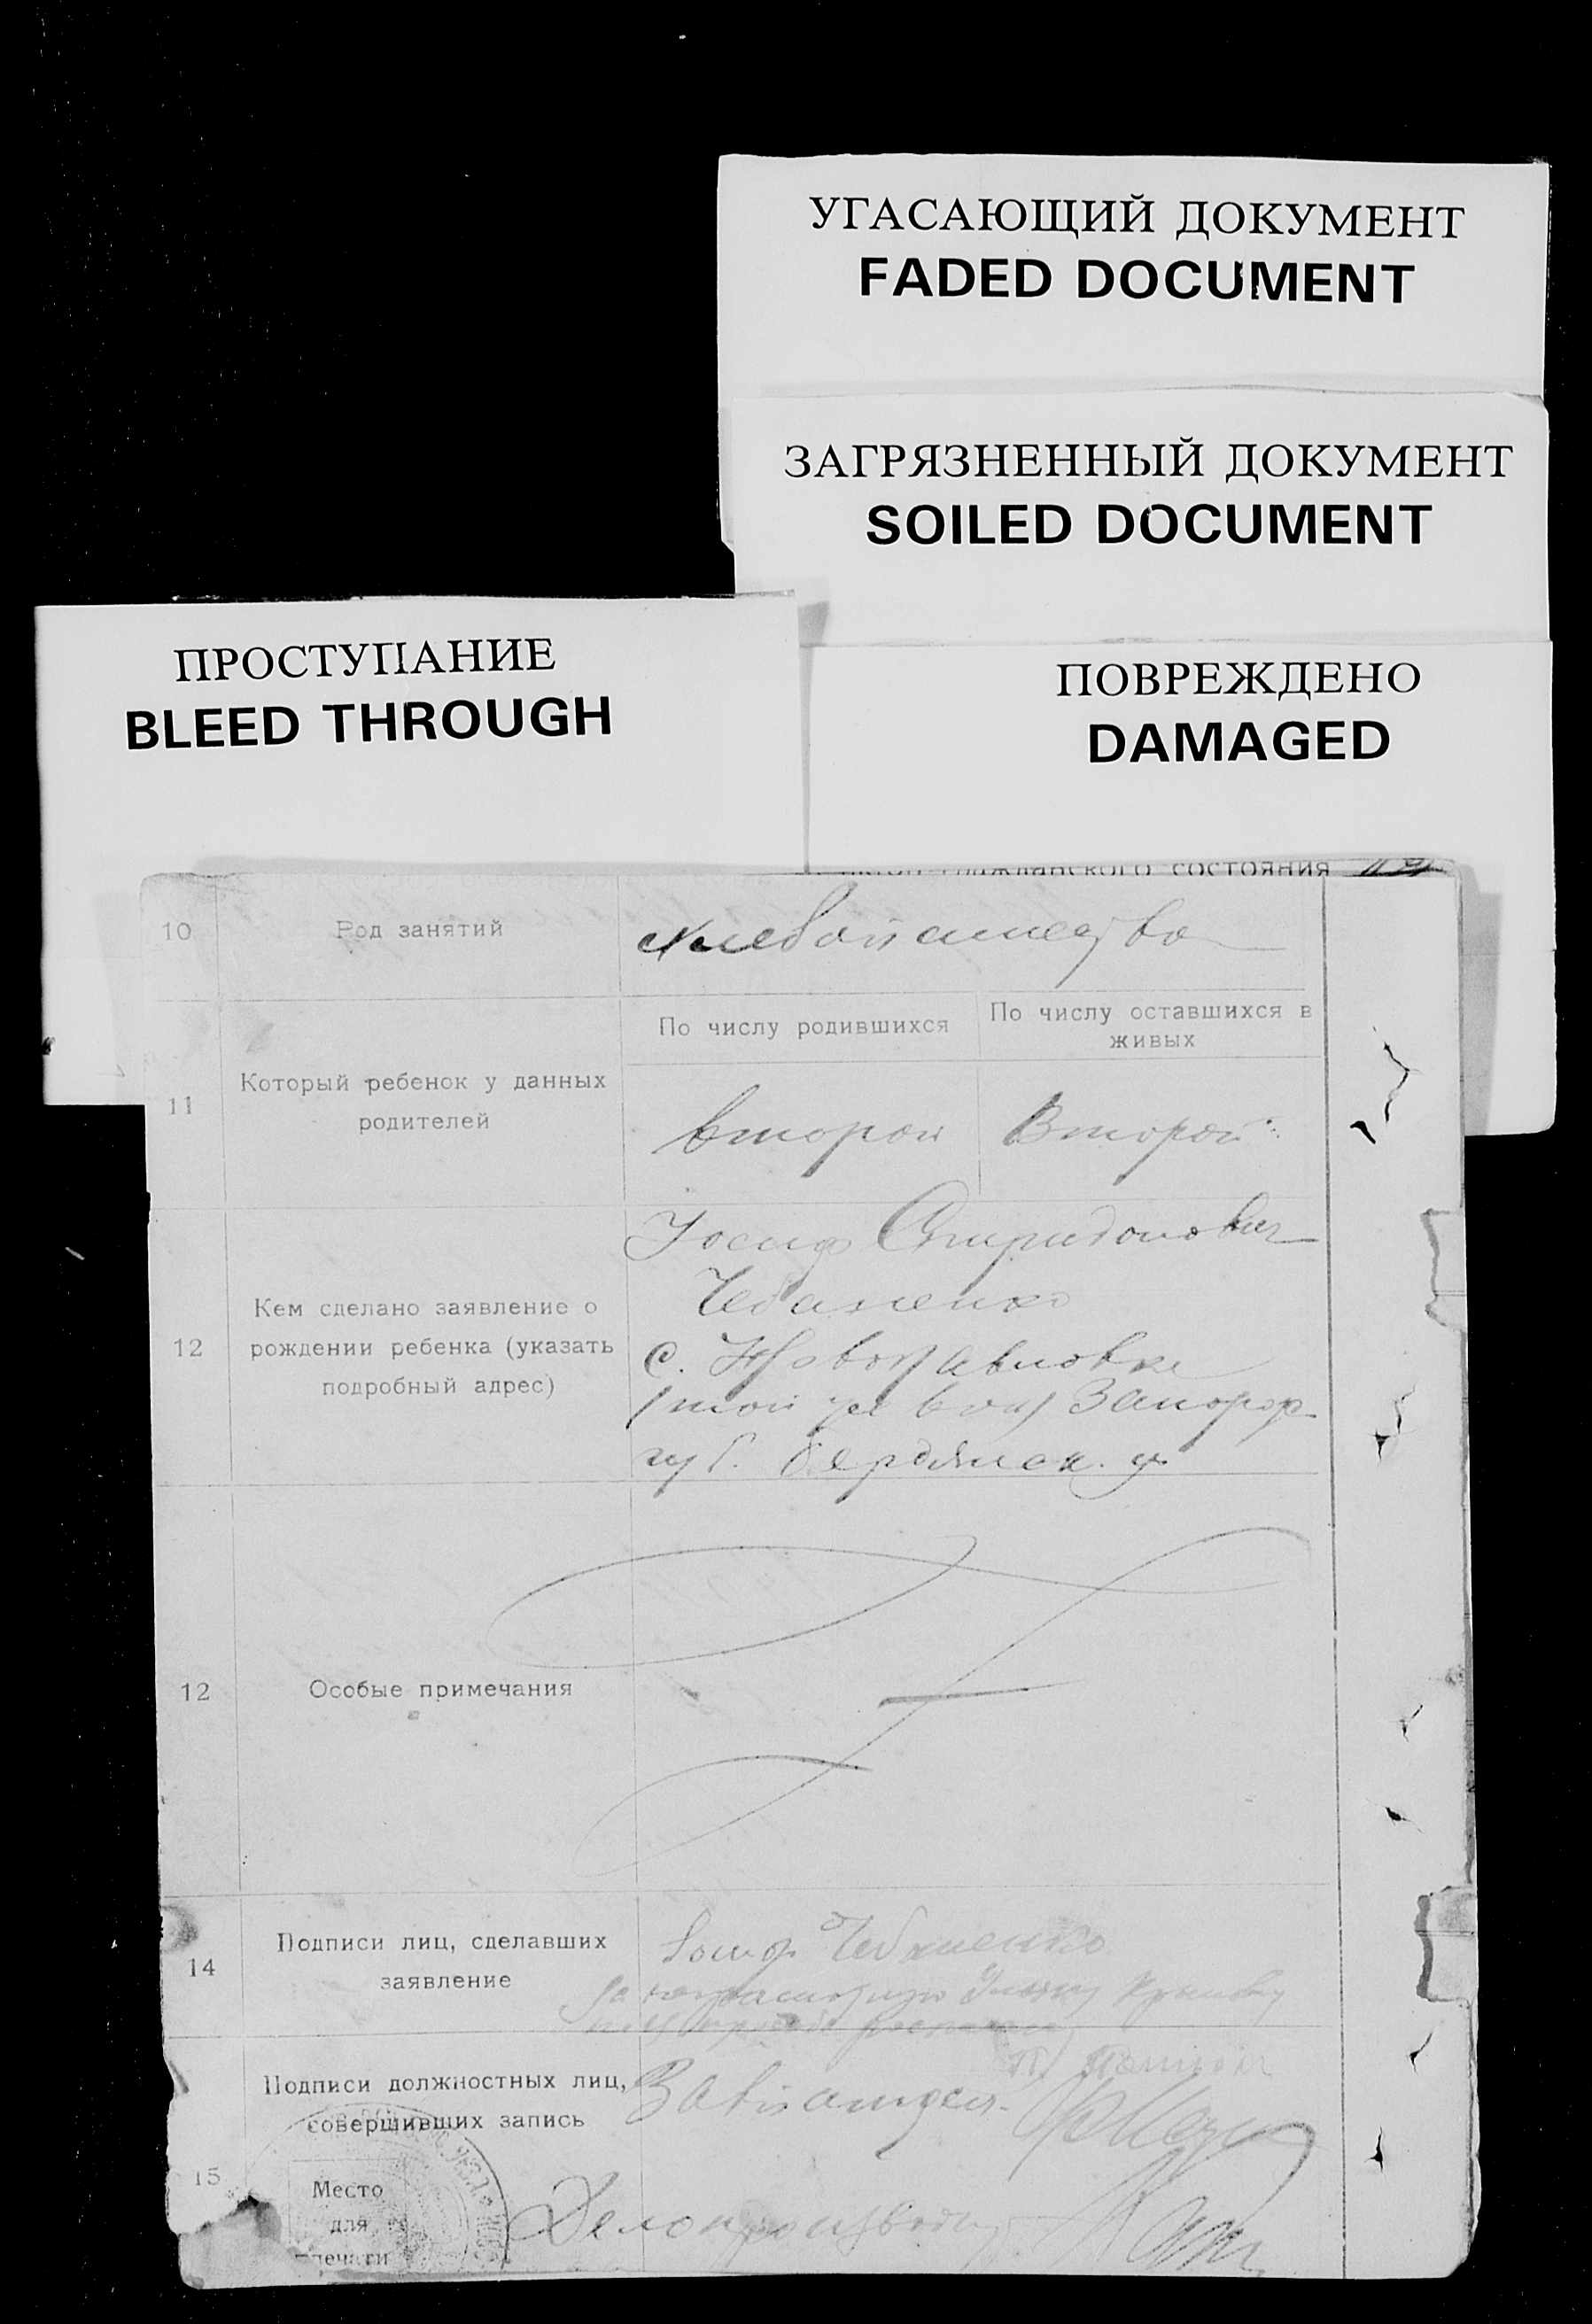 УГАСАЮЩИЙ ДОКУМЕНТ
FADED DOCUMENT
ЗАГРЯЗНЕННЫЙ ДОКУМЕНТ
SOILED DOCUMENT
ПРОСТУПАНИЕ
BLEED THROUGH
ПОВРЕЖДЕНО
DAMAGED
гражданского состояния
10 Род занятий хлебопашество
По числу родившихся По числу оставшихся в живых
11 Который ребенок у данных
родителей
второй Второй
Иосиф Спиридонович
Чебаненко
12 Кем сделано заявление о
рождении ребенка (указать
подробный адрес)
с. Новопавловке
той же вол Запорож
губ. Бердянск. у
12 Особые примечания
14 Подписи лиц, сделавших
заявление
Иосиф Чебаненко
15 Подписи должностных лиц,
совершивших запись
Завзапися.
Место
для
печати
Делопроизводит